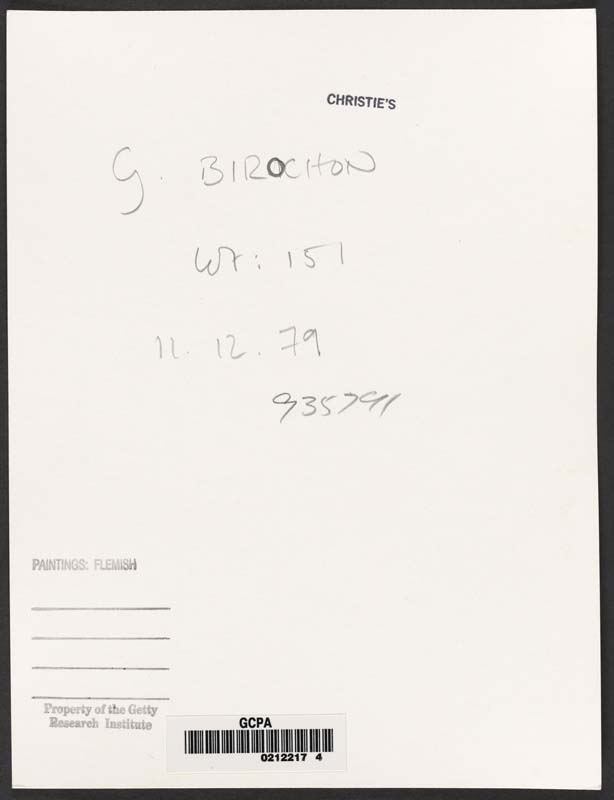 CHRISTIE'S
G. BIROCHON
WT: 151
11. 12. 79
935791
PAINTINGS: FLEMISH
Property of the Getty
Research Institute
GCPA
0212217 4